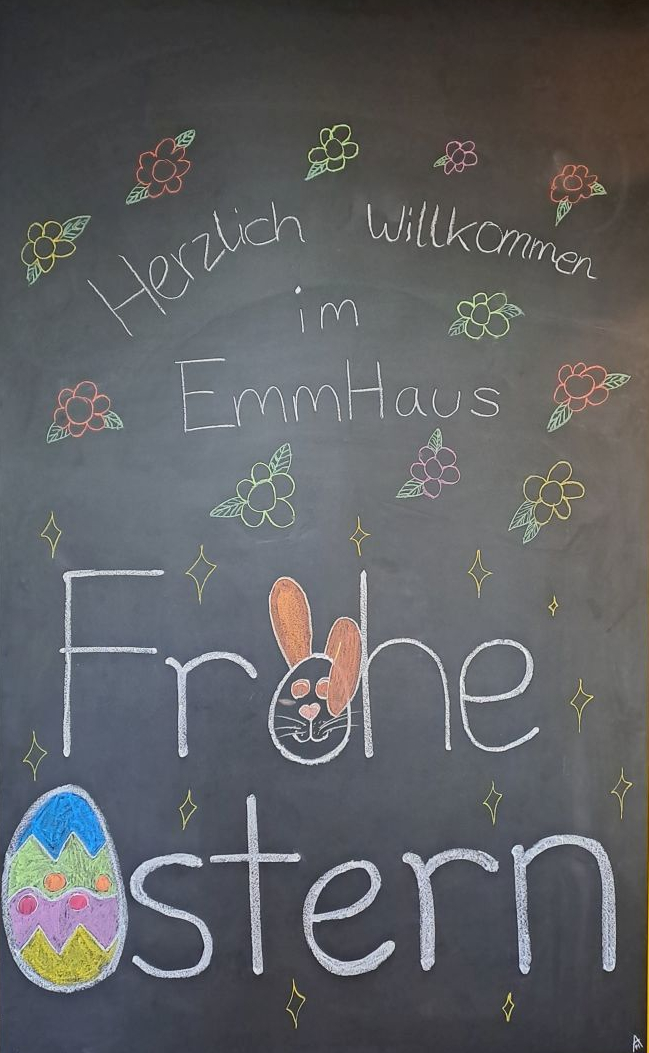 Herzlich Willkommen
im
EmmHaus
Frohe
Ostern